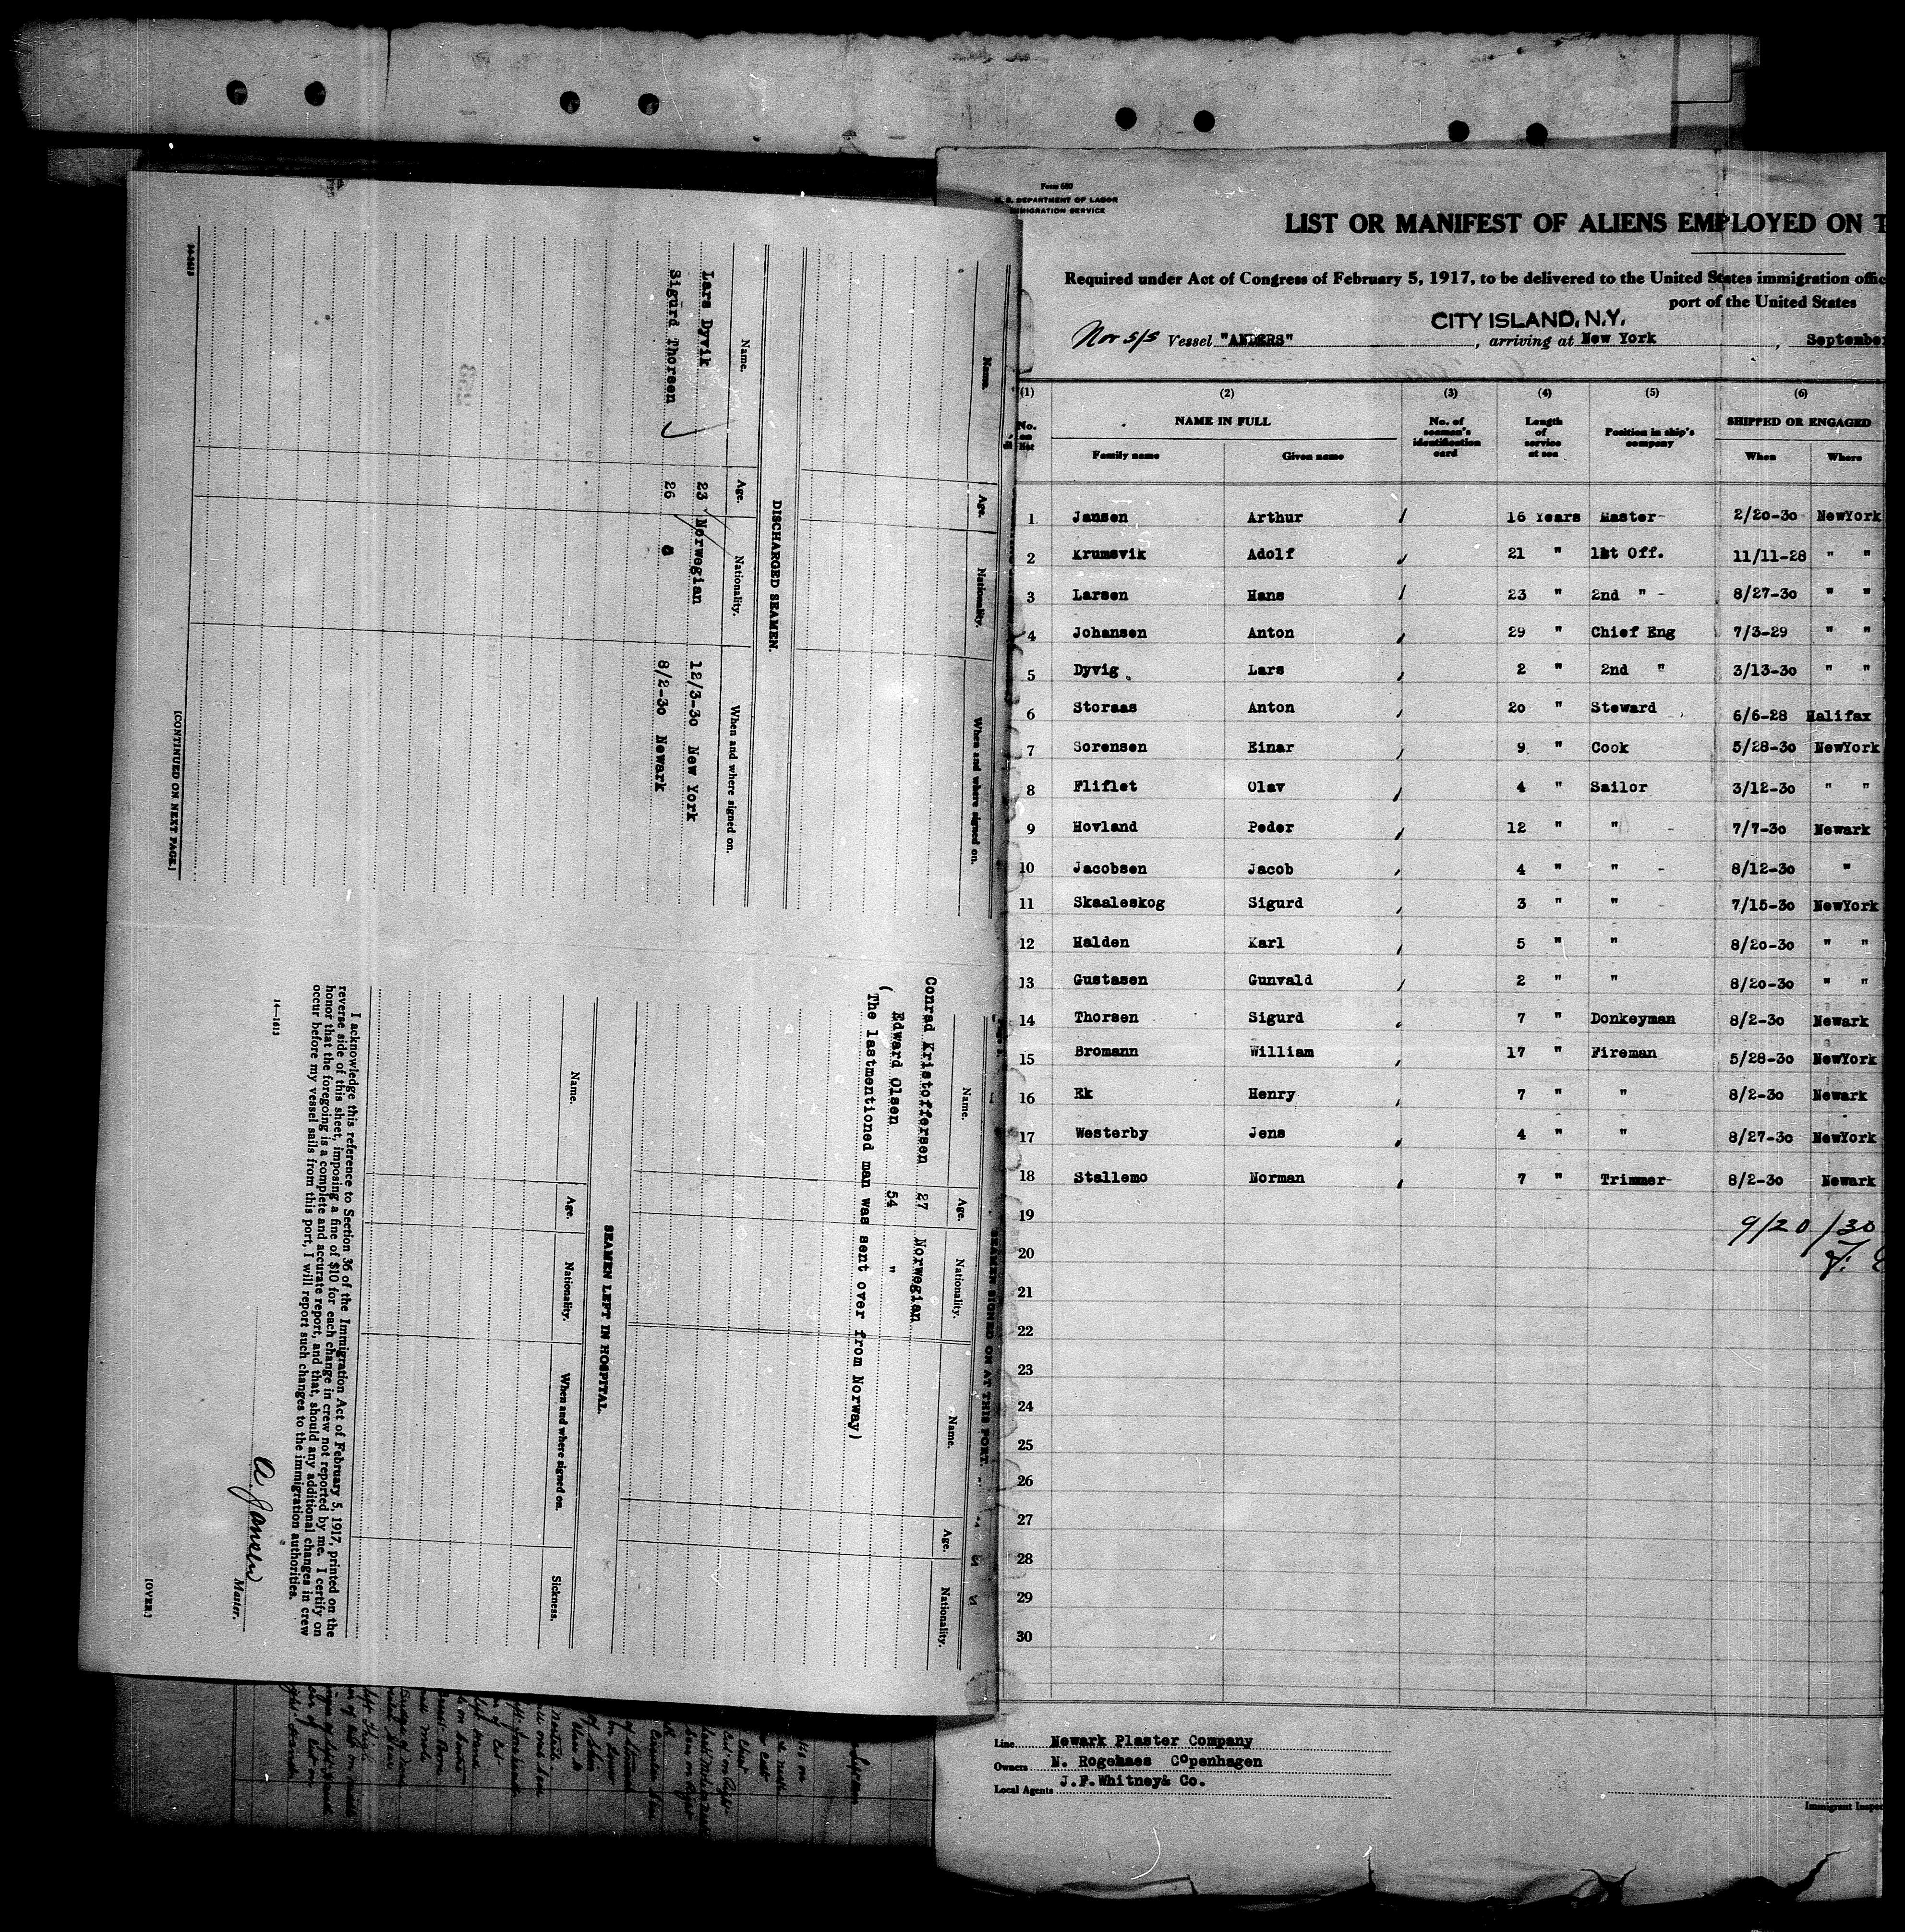 Form 680
U. S. DEPARTMENT OF LABOR
IMMIGRATION SERVICE
LIST OR MANIFEST OF ALIENS EMPLOYED ON T
Required under Act of Congress of February 5, 1917, to be delivered to the United States immigration offic
port of the United States
CITY ISLAND, N.Y.
Nor S/S Vessel "ANDERS", arriving at New York, September
(1) (2) (3) (4) (5) (6)
No. on list NAME IN FULL No. of seaman's identification card Length of service at sea Position in ship's company SHIPPED OR ENGAGED
Family name Given name When Where
1 Jansen Arthur 16 Years Master 2/20-30 NewYork
2 Krumsvik Adolf 21 " 1st Off. 11/11-28 " "
3 Larsen Hans 23 " 2nd " - 8/27-30 " "
4 Johansen Anton 29 " Chief Eng 7/3-29 " "
5 Dyvig Lars 2 " 2nd " 3/13-30 " "
6 Storaas Anton 20 " Steward 6/6-28 Halifax
7 Sorensen Einar 9 " Cook 5/28-30 NewYork
8 Fliflet Olav 4 " Sailor 3/12-30 " "
9 Hovland Peder 12 " " - 7/7-30 Newark
10 Jacobsen Jacob 4 " " - 8/12-30 "
11 Skaaleskog Sigurd 3 " " - 7/15-30 NewYork
12 Halden Karl 5 " " 8/20-30 " "
13 Gustasen Gunvald 2 " " 8/20-30 " "
14 Thorsen Sigurd 7 " Donkeyman 8/2-30 Newark
15 Bromann William 17 " Fireman 5/28-30 NewYork
16 Rk Henry 7 " " 8/2-30 Newark
17 Westerby Jens 4 " " 8/27-30 NewYork
18 Stallemo Norman 7 " Trimmer- 8/2-30 Newark
19
9/20/30
20
21
22
23
24
25
26
27
28
29
30
Line Newark Plaster Company
Owners N. Rogenaes Copenhagen
Local Agents J.F.Whitney& Co.
Immigrant Inspec
Name. Age. Nationality. When and where signed on.
DISCHARGED SEAMEN.
Name. Age. Nationality. When and where signed on.
Lars Dyvik 23 Norwegian 12/3-30 New York
Sigurd Thorsen 26 " 8/2-30 Newark
[CONTINUED ON NEXT PAGE.]
SEAMEN SIGNED ON AT THIS PORT.
Name. Age. Nationality. Name. Age. Nationality.
Conrad Kristoffersen 27 Norwegian
Edward Olsen 54 "
(The lastmentioned man was sent over from Norway)
SEAMEN LEFT IN HOSPITAL.
Name. Age. Nationality. When and where signed on. Sickness.
I acknowledge this reference to Section 36 of the Immigration Act of February 5, 1917, printed on the
reverse side of this sheet, imposing a fine of $10 for each change in crew not reported by me. I certify on
honor that the foregoing is a complete and accurate report, and that, should any additional changes in crew
occur before my vessel sails from this port, I will report such changes to the immigration authorities.
A. Jansen
Master.
14—1613
[OVER.]